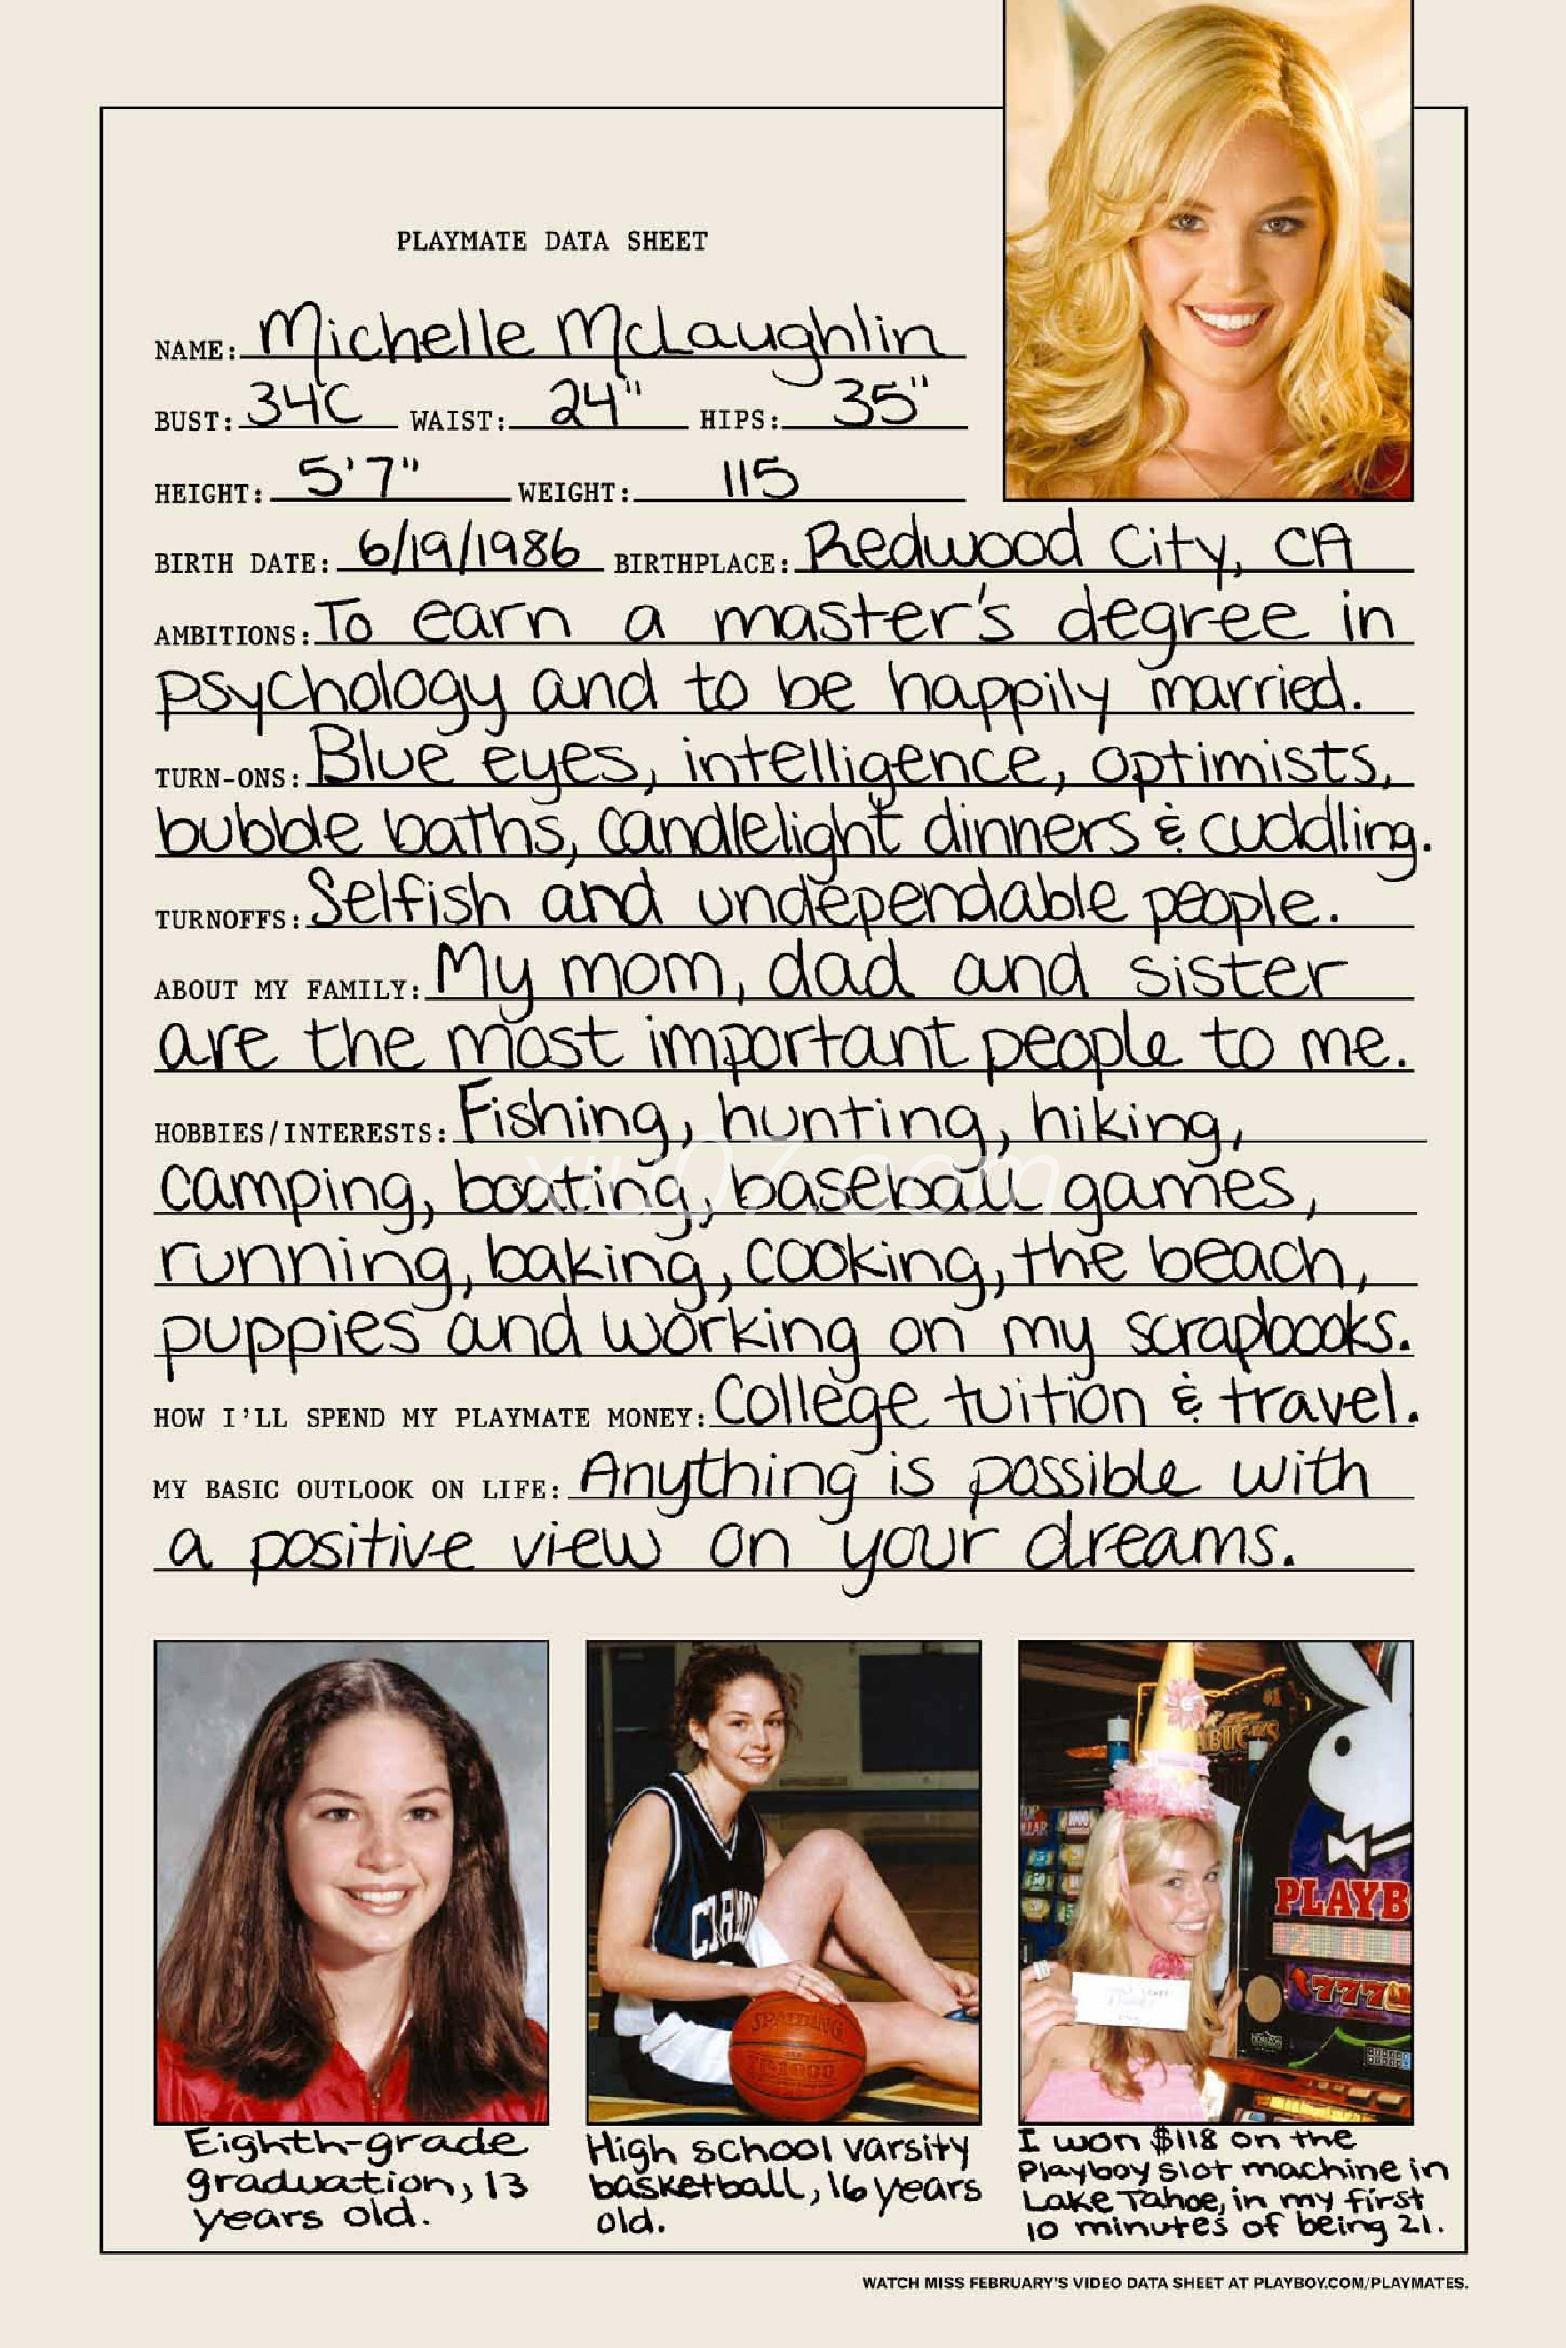 PLAYMATE DATA SHEET
NAME: Michelle McLaughlin
BUST: 34C WAIST: 24" HIPS: 35"
HEIGHT: 5'7" WEIGHT: 115
BIRTH DATE: 6/19/1986 BIRTHPLACE: Redwood City, CA
AMBITIONS: To earn a master's degree in
psychology and to be happily married.
TURN-ONS: Blue eyes, intelligence, optimists,
bubble baths, candlelight dinners & cuddling.
TURNOFFS: Selfish and undependable people.
ABOUT MY FAMILY: My mom, dad and sister
are the most important people to me.
HOBBIES/INTERESTS: Fishing, hunting, hiking,
xiu07.com
camping, boating, baseball games,
running, baking, cooking, the beach,
puppies and working on my scrapbooks.
HOW I'LL SPEND MY PLAYMATE MONEY: College tuition & travel.
MY BASIC OUTLOOK ON LIFE: Anything is possible with
a positive view on your dreams.
SPALDING
PLAYB
777
Eighth-grade
graduation, 13
years old.
High school varsity
basketball, 16 years
old.
I won $118 on the
Playboy slot machine in
Lake Tahoe, in my first
10 minutes of being 21.
WATCH MISS FEBRUARY'S VIDEO DATA SHEET AT PLAYBOY.COM/PLAYMATES.